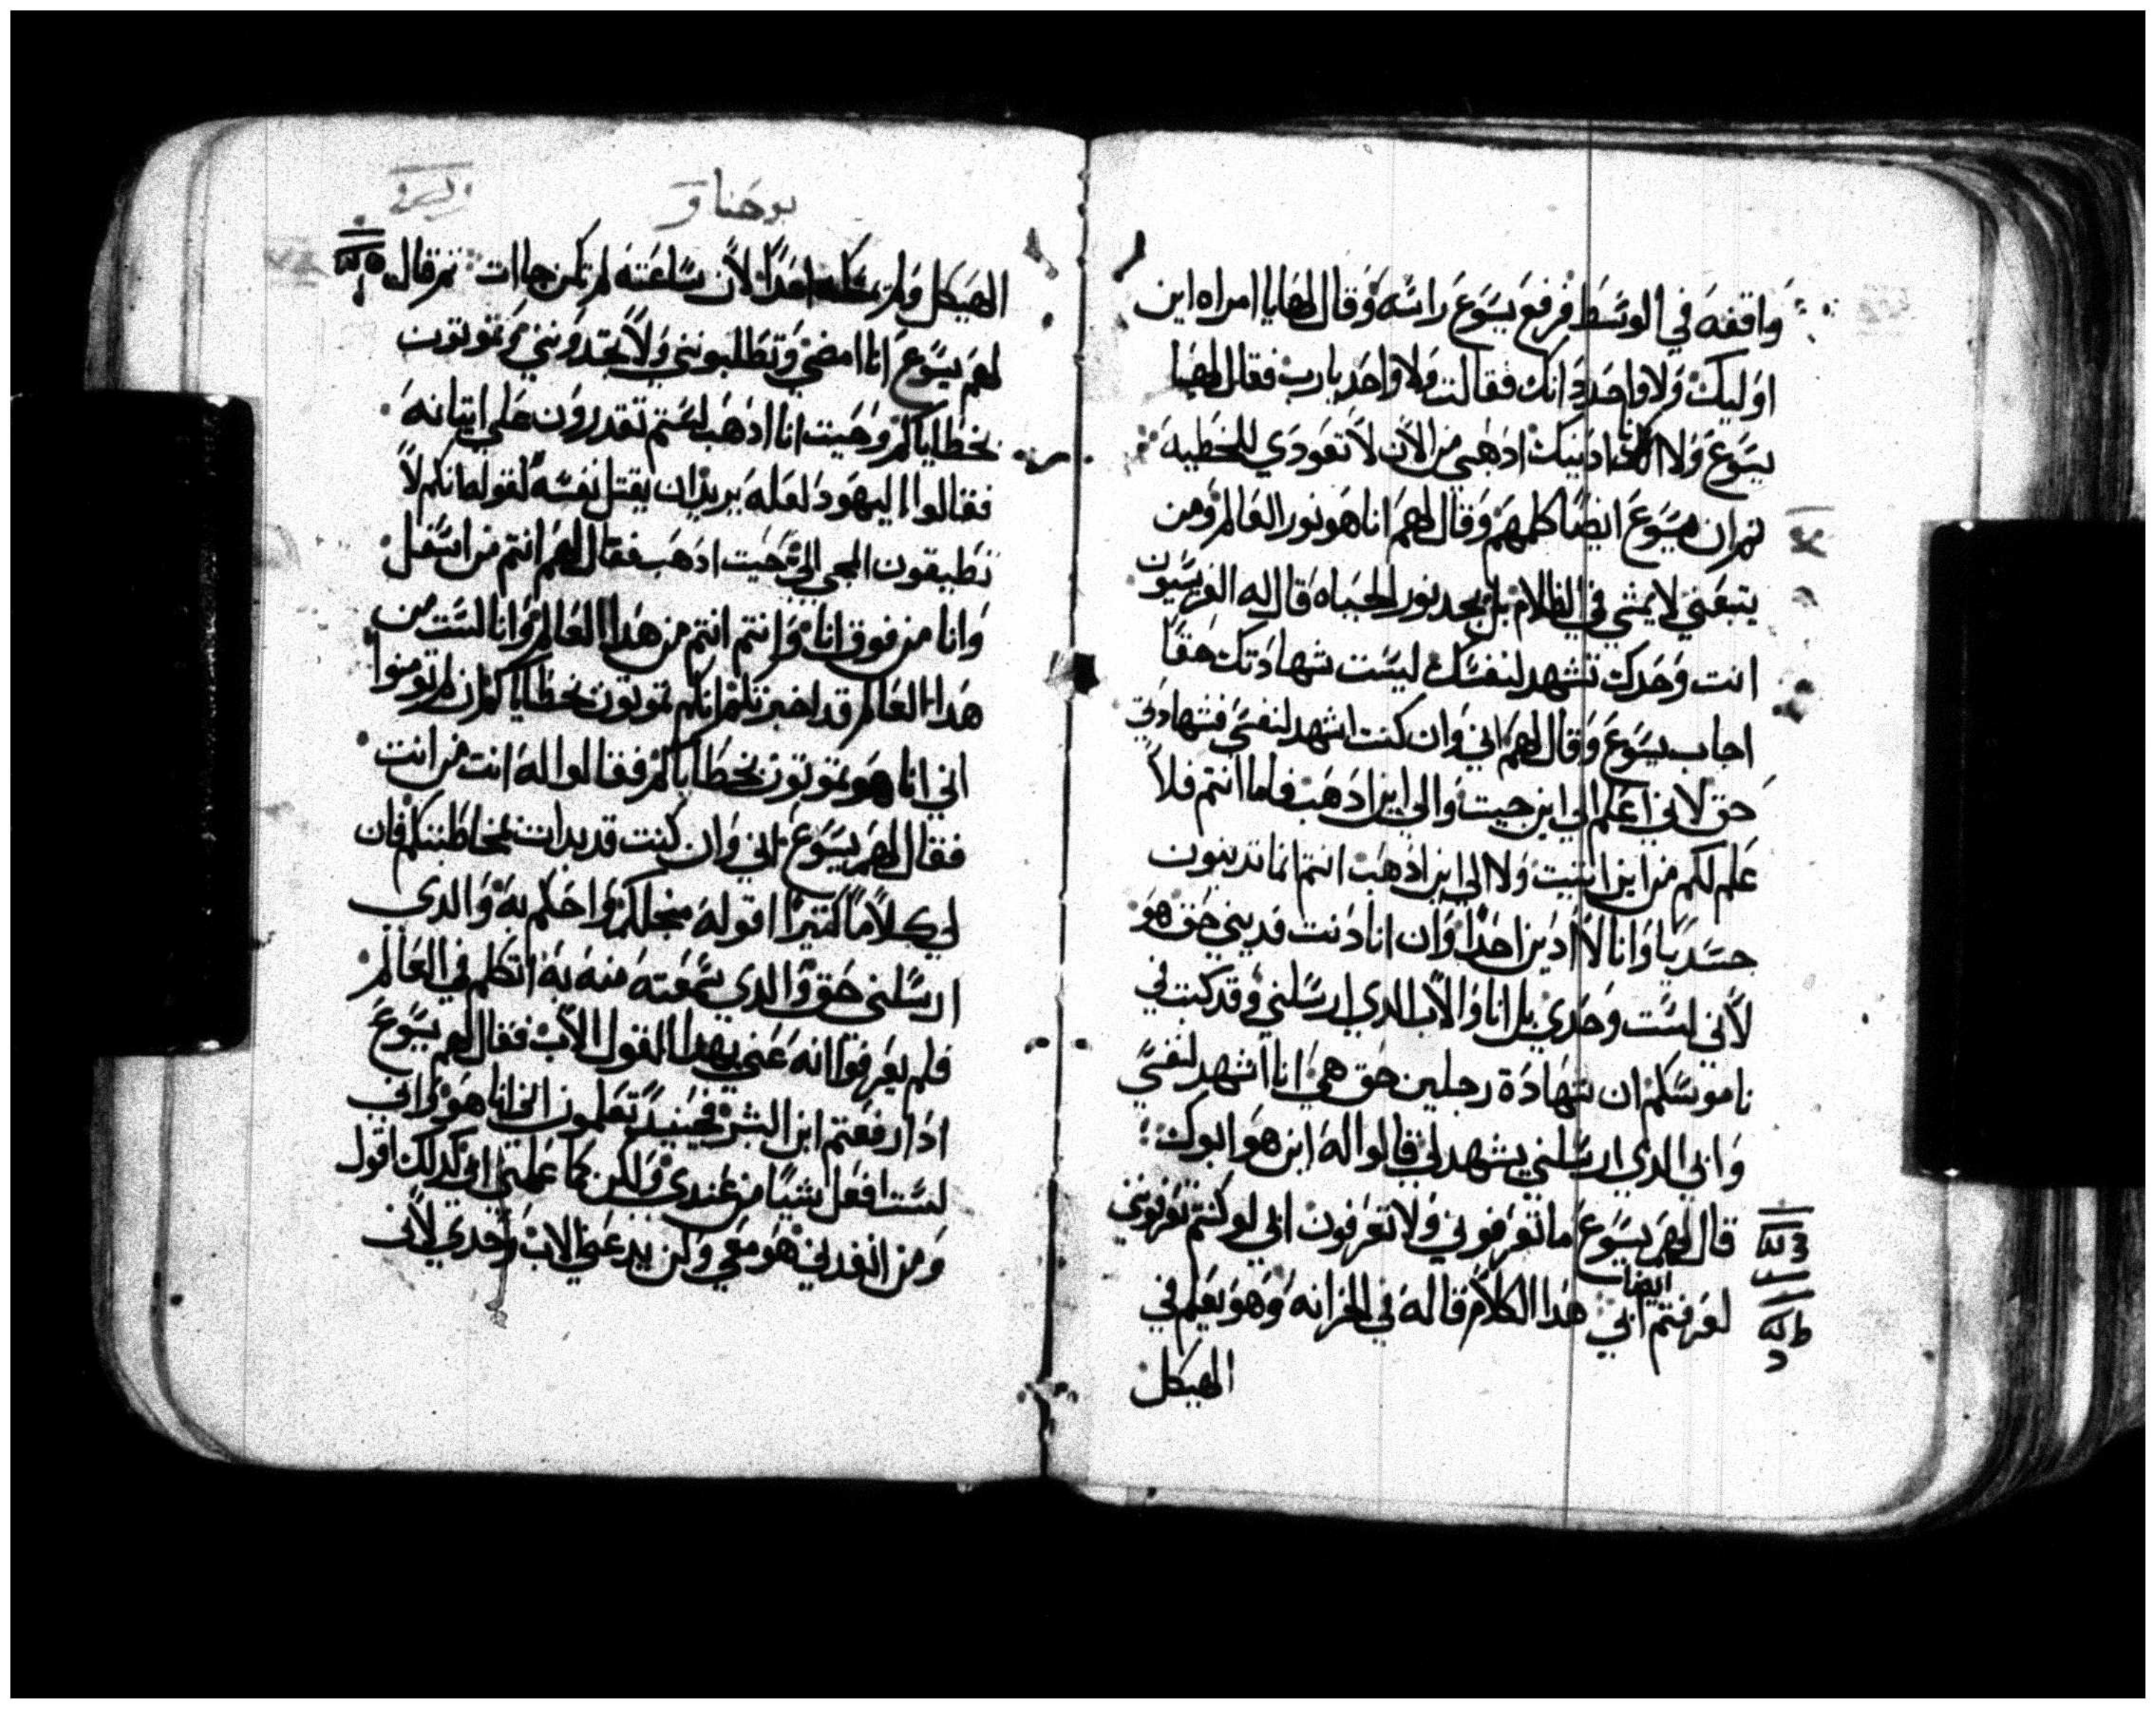 واقفه في الوسط فرفع يسوع راسه وقال لها يا امراه اين
اوليك ولا واحد دانك فقالت ولا واحد يا رب فقال لها
يسوع ولا انا ادينك ادهبي من الان لا تعودي للخطيه
ثم ان يسوع ايضا كلمهم وقال لهم انا هو نور العالم ومن
يتبعني لا يمشي في الظلام بل يجد نور الحياه قال له الفريسيون
انت وحدك تشهد لنفسك ليست شهادتك حقا
اجاب يسوع وقال لهم اني وان كنت اشهد لنفسي فشهادتي
حق لاني اعلم الي اين جيت والي اين ادهب فاما انتم فلا
علم لكم من اين اتيت ولا الي اين ادهب انتم انما تدينون
جسديا وانا لا ادين احدا وان انا دنت فديني حق هو
لاني لست وحدي بل انا والاب الدي ارسلني وقد كتب في
ناموسكم ان شهادة رجلين حق هي انا اشهد لنفسي
وابي الدي ارسلني يشهد لي قالوا له اين هو ابوك
قال لهم يسوع ما تعرفوني ولا تعرفون ابي لو كنتم تعرفوني
لعرفتم ابي ايضا هدا الكلام قاله في الخزانه وهو يعلم في
الهيكل
يوحنا
الهيكل ولم يمسكه احدا لان ساعته لم تكن جاات ثم قال
لهم يسوع انا امضي وتطلبونني ولا تجدونني وتموتون
بخطاياكم وحيت انا ادهب لستم تقدرون علي اتيانه
فقالوا اليهود لعله يريد ان يقتل نفسه لقوله انكم لا
تطيقون المجي الي حيت ادهب فقال لهم انتم من اسفل
وانا من فوق انا وانتم انتم من هدا العالم وانا لست من
هدا العالم قد اخبرتكم انكم تموتون بخطاياكم ان لم تومنوا
اني انا هو تموتون بخطاياكم فقالوا له انت من انت
فقال لهم يسوع اني وان كنت قد بدات بمخاطبتكم فان
لي كلاما كتيرا اقوله من اجلكم واحكم به والدي
ارسلني حق والدي سمعته منه به اتكلم في العالم
فلم يعرفوا انه عني بهدا القول الاب فقال لهم يسوع
ادا رفعتم ابن البشر فحينيد تعلمون اني انا هو واني
لست افعل شيا من عندي ولكن كما علمني ابي كدلك اقول
ومن انفدني هو معي ولن يدعني الاب وحدي لاني